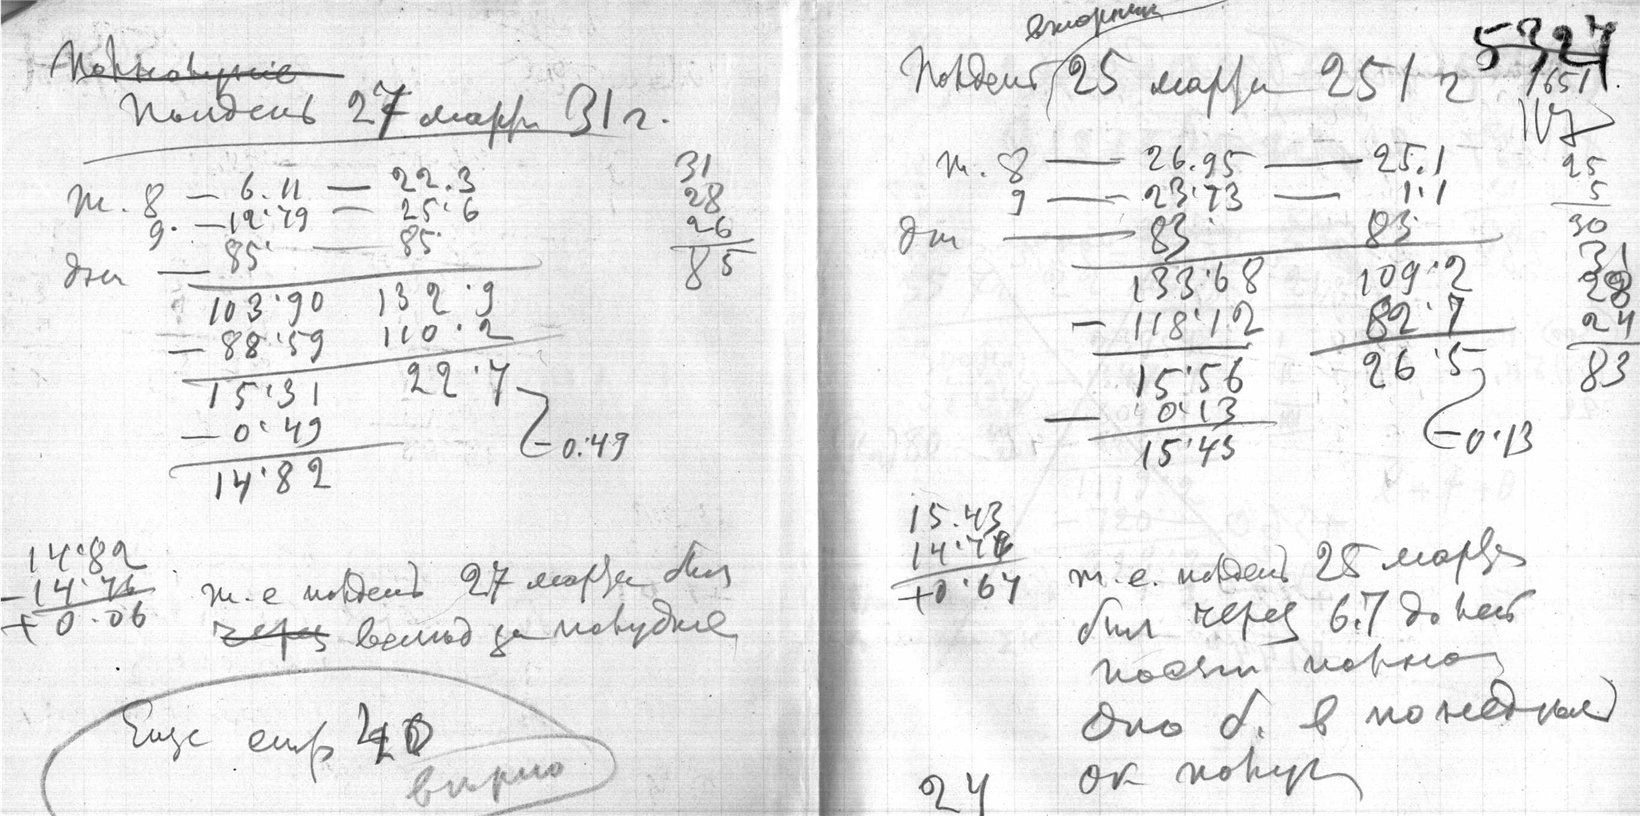 Полнолуние
Полдень 27 марта 31 г.
т. 8 — 6.11 — 22.3
9. — 12.79 — 25.6
дни — 85 — 85
103.90 132.9
— 88.59 110.2
15.31 22.7
— 0.49 — 0.49
14.82
31
28
26
85
14.82
— 14.76
+ 0.06
т.е полдень 27 марта был
через вслед за полуднем
Еще стр
верно
вторник
Полдень 25 марта 251 г
5327
1651.
т. 8 — 26.95 — 25.1
9 — 23.73 — 1.1
дни — 83 83
133.68 109.2
— 118.12 82.7
15.56 26.5
— 0.13 — 0.13
15.43
25
5
30
31
28
24
83
15.43
14.76
+0.67
т.е. полдень 25 марта
был через 6.7 долей
после полно
Оно б. в понедель
ок полуд
24